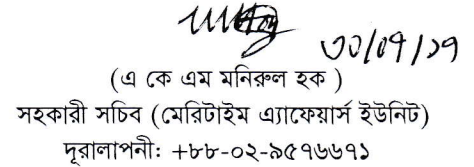 ৩০/০৭/১৭
(এ কে এম মনিরুল হক )
সহকারী সচিব (মেরিটাইম এ্যাফেয়ার্স ইউনিট)
দূরালাপনী: +৮৮-০২-৯৫৭৬৬৭১